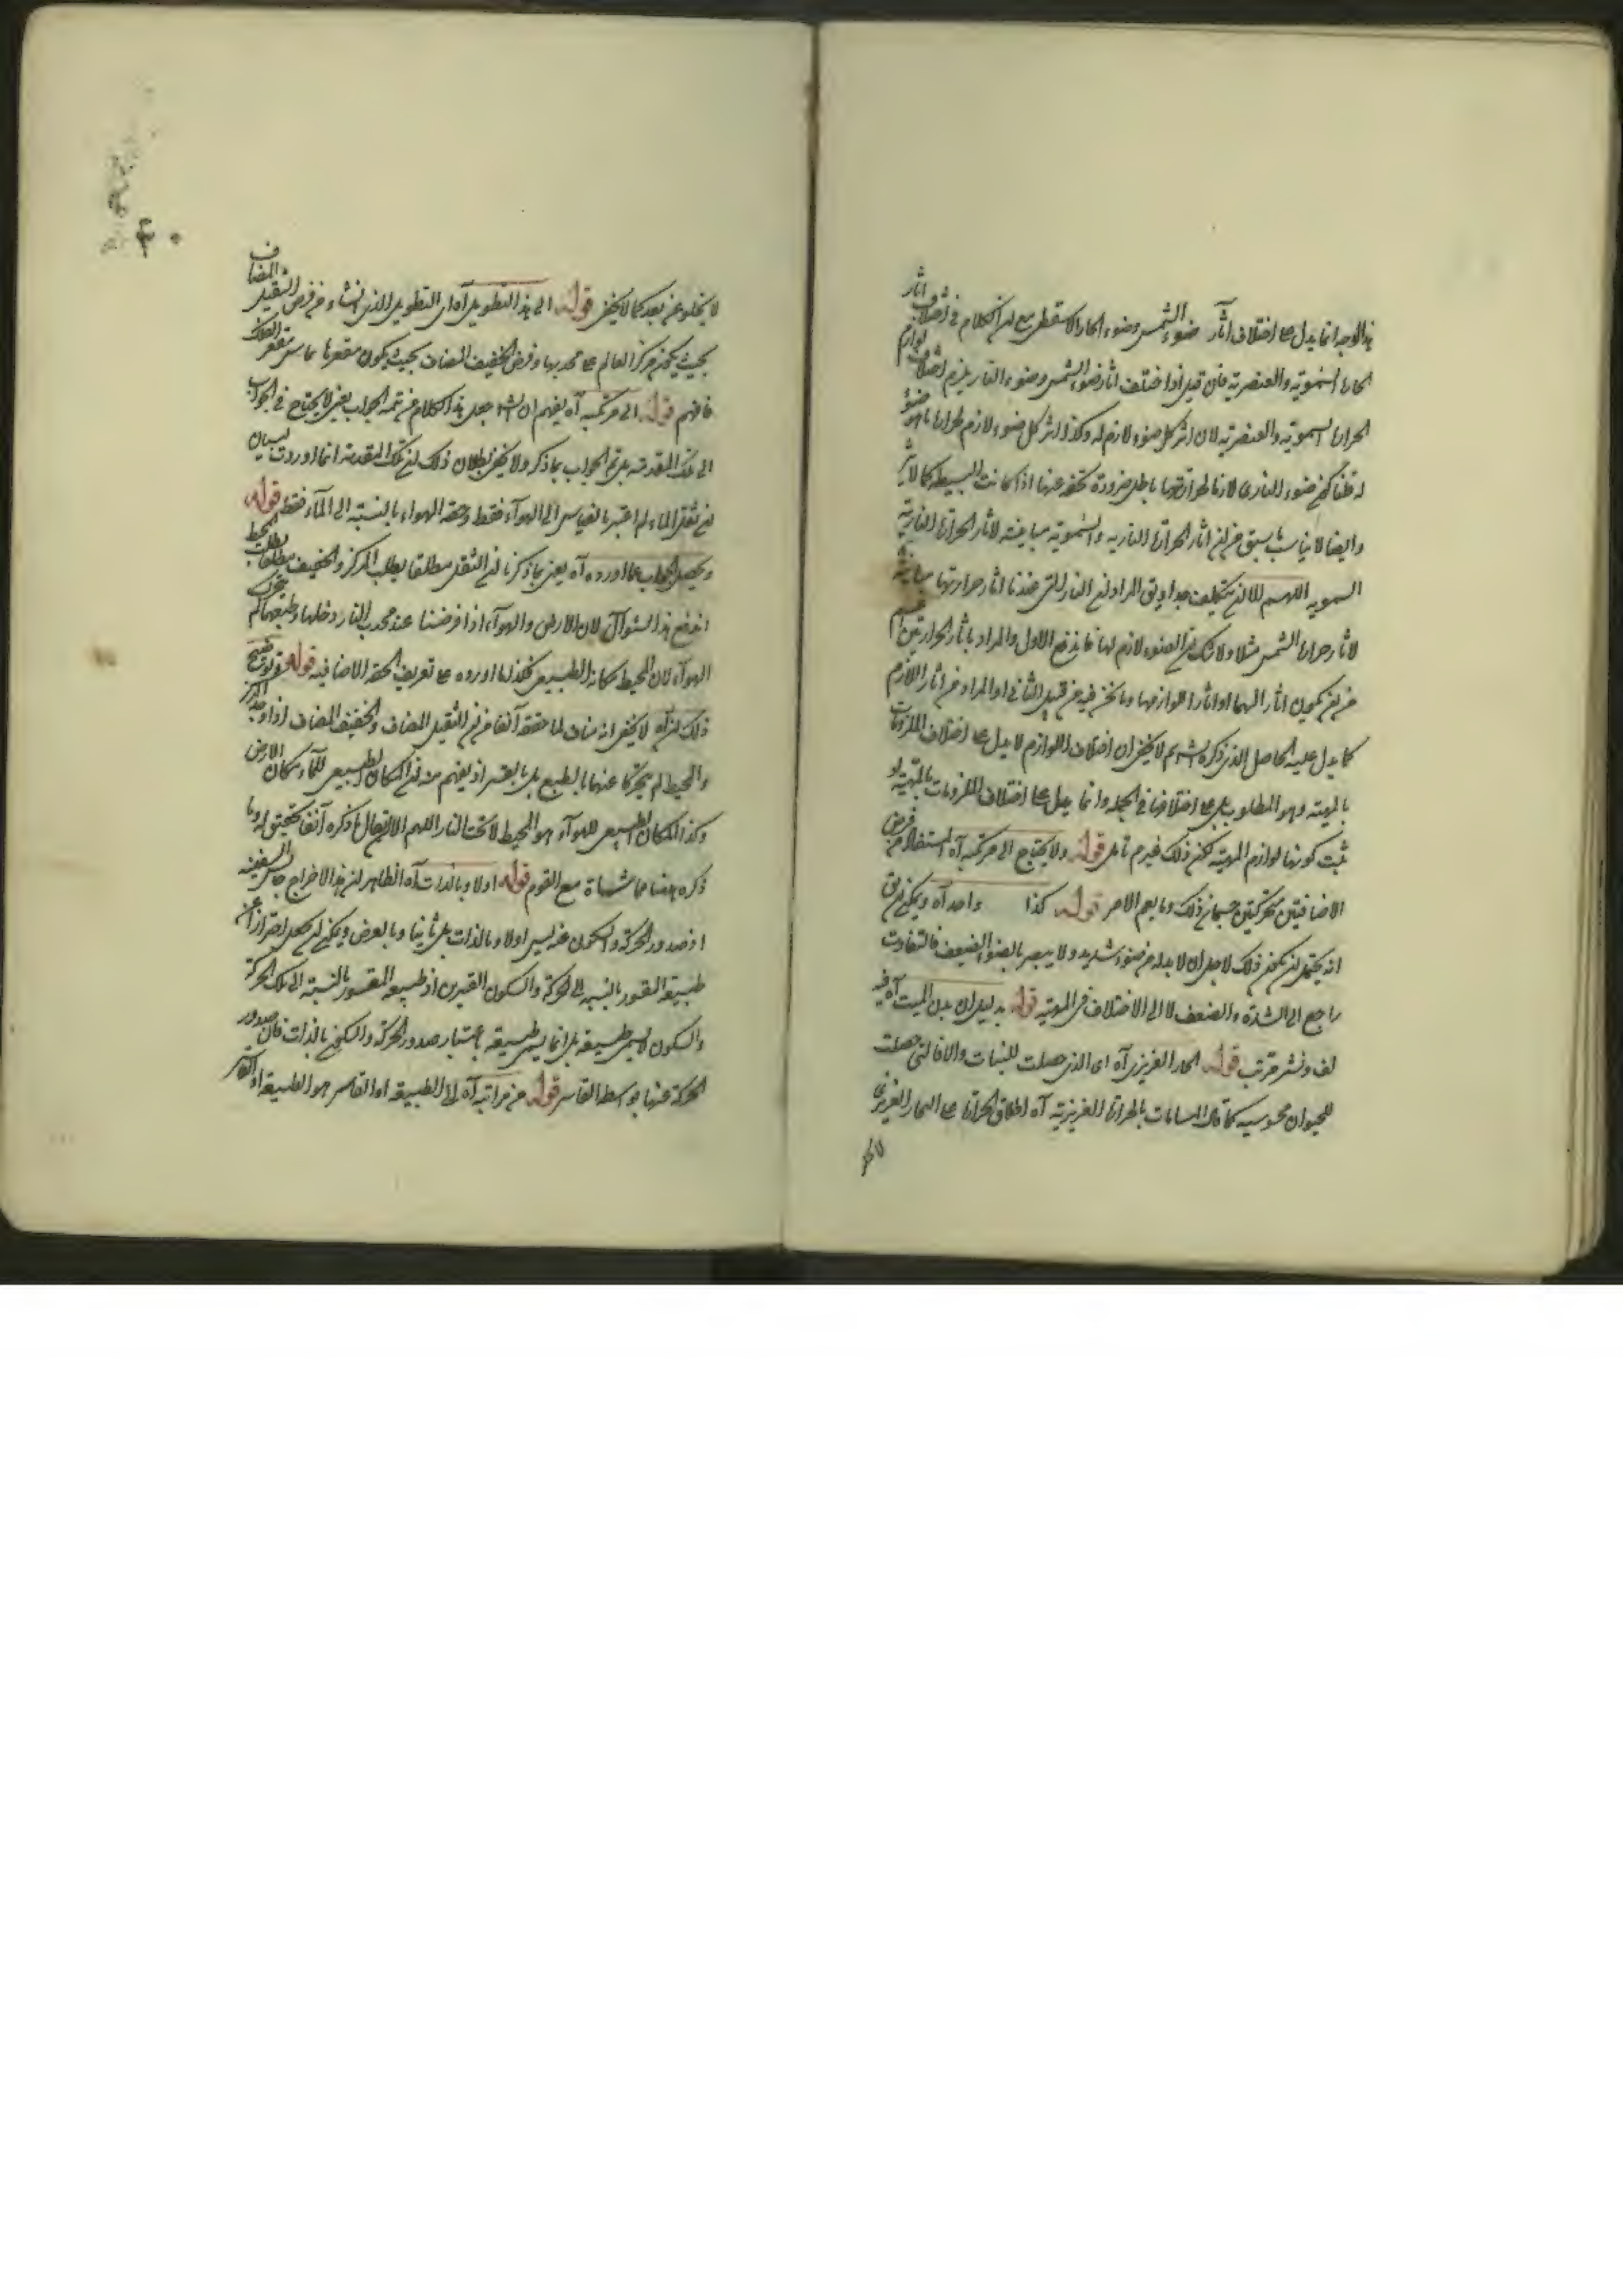 هذا الوجه انما يدل على اختلاف آثار ضوء الشمس وضوء الحار الاسطقسي مع ان الكلام في اختلاف آثار
الحارة السموية والعنصرية فان قيل اذا اختلف آثار ضوء الشمس وضوء النار يلزم اختلاف لوازم
الحرارة السموية والعنصرية لان اثر كل ضوء لازم له وكذا اثر كل ضوء لازم لحرارة ما هو ضوء
له قلنا كون ضوء النار لازما لحرارتها باطل ضرورة تخلفه عنها اذا كانت بسيطة كالاثير
وايضا لا يناسب ما سبق من ان آثار الحرارة النارية والسموية مباينة لآثار الحرارة الغريزية
السموية اللهم الا ان يتكلف جدا ويق المراد ان النار التي عندنا آثار حرارتها مباينة
لآثار حرارة الشمس مثلا ولا شك ان الضوء لازم لها فاندفع الاول والمراد بآثار الحرارتين اعم
من ان يكون آثارا لهما او آثارا للوازمها وما نحن فيه من قبيل الثاني او المراد من آثار اللازم
كما يدل عليه الحاصل الذي ذكره الش ثم لا يخفى ان اختلاف اللوازم لا يدل على اختلاف الملزومات
بالمهية وهو المطلوب بل على اختلافها في الجملة وانما يدل على اختلاف الملزومات بالمهية لو
ثبت كونها لوازم المهية لكن ذلك غير م تأمل قوله ولا يحتاج الى حركتيه آه المستفاد من فرض
الاضافتين حركتين حسبان ذلك وما يعم الامر قوله كذا واحد آه ويمكن ان يق
انه يحتمل ان يكون ذلك لاجل ان لا بد له من ضوء شديد ولا يبصر بالضوء الضعيف فالتفاوت
راجع الى الشدة والضعف لا الى الاختلاف في المهية قوله بدليل ان بدن الميت آه فيه
لف ونشر مرتب قوله الحار الغريزي آه اى الذي حصلت للنبات والا فالتي حصلت
للحيوان محسوسة كما قال المسامات بالحرارة الغريزية آه اطلاق الحرارة على الحار الغريزي
لا يخلو عن بعد كما لا يخفى قوله الى هذا التطويل آه اى التطويل الذي نشاء من فرض الثقيل المضاف
بحيث يكون مركز العالم على محدبها وفرض الخفيف المضاف بحيث يكون مقعرها مماس مقعر الفلك
فافهم قوله الى حركتيه آه يفهم ان الش جعل هذا الكلام من تتمة الجواب يعني لا يحتاج في الجواب
الى تلك المقدمة بل تم الجواب بما ذكر ولا يخفى بطلان ذلك لان تلك المقدمة انما اوردت لبيان
ان ثقل الماء لم اعتبر بالقياس الى الهواء فقط وخفة الهواء بالنسبة الى الماء فقط قوله
ويحصل الجواب عما اورده آه يعني بما ذكرنا ان الثقيل مطلقا يطلب المركز والخفيف مطلقا يطلب المحيط
اندفع هذا السؤال لان الارض والهواء اذا فرضنا عند محدب النار وخليا وطبعهما تحرك
الهواء لان المحيط مكانه الطبيعي فكذا ما اورده على تعريف الخفة الاضافية قوله وتوضيح
ذلك ان آه لا يخفى انه مناف لما حققه آنفا من ان الثقيل المضاف والخفيف المضاف اذا وجدا المركز
والمحيط لم يتحركا عنهما بالطبع بل بالقسر اذ يفهم منه ان المكان الطبيعي للماء مكان الارض
وكذا المكان الطبيعي للهواء هو المحيط لا تحت النار اللهم الا ان يقال ما ذكره آنفا تحقيق له وما
ذكره هنا مماشاة مع القوم قوله اولا وبالذات آه الظاهر ان هذا الاخراج جالس السفينة
اذ صدور الحركة والسكون عنه ليس اولا وبالذات بل ثانيا وبالعرض ويمكن ان يجعل احترازا عن
طبيعة المقسور بالنسبة الى الحركة والسكون القسرى اذ طبيعة المقسور بالنسبة الى تلك الحركة
والسكون لا يسمى طبيعة بل انما يسمى طبيعة باعتبار صدور الحركة والسكون بالذات فان صدور
الحركة عنها بواسطة القاسر قوله من مراتبه آه اى الطبيعة او القاسر هو الطبيعة او القاسر